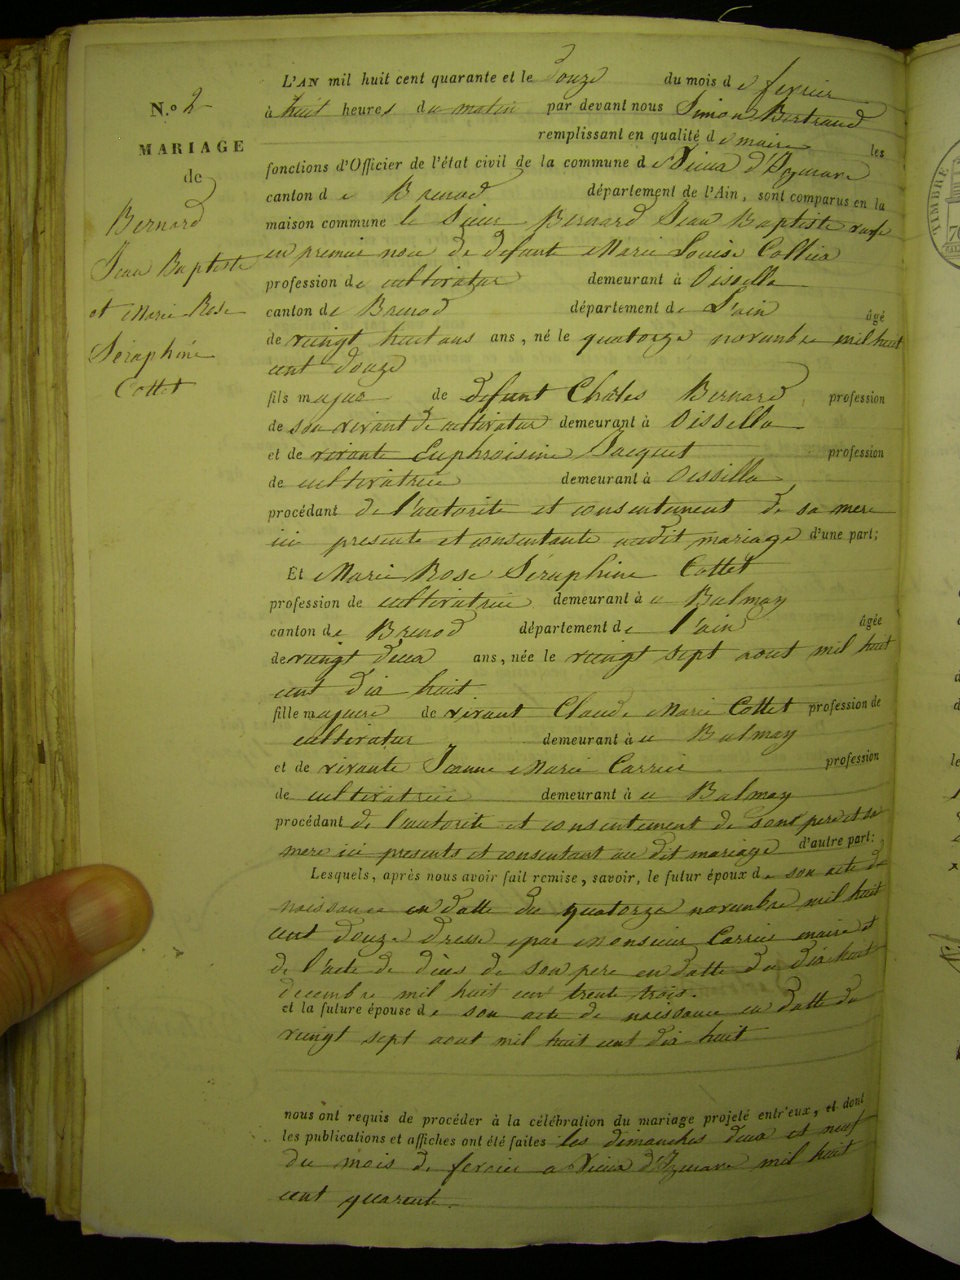 N.o 2
MARIAGE
de
Bernard
Jean Baptiste
et Marie Rose
Séraphine
Cottet
L'AN mil huit cent quarante et le douze du mois de fevrier
à huit heures du matin par devant nous Simon Bertrand
remplissant en qualité de maire les
fonctions d'Officier de l'état civil de la commune de Vieux d'Izenave
canton de Brenod département de l'Ain, sont comparus en la
maison commune le Sieur Bernard Jean Baptiste veuf
en premier noce de defunte Marie Louise Collier
profession de cultivateur demeurant à Oissella
canton de Brenod département de L'ain âgé
de vingt huit ans ans, né le quatorze novembre mil huit
cent douze
fils majeur de defunt Charles Bernard profession
de son vivant de cultivateur demeurant à Oissella
et de vivante Euphroisine Jacquet profession
de cultivatrice demeurant à Oissella
procédant de l'autorite et consentement de sa mere
ici presente et consentante audit mariage d'une part;
Et Marie Rose Séraphine Cottet
profession de cultivatrice demeurant à u Balmay
canton de Brenod département de l'ain âgée
de vingt deux ans, née le vingt sept aout mil huit
cent dix huit
fille majeure de vivant Claude Marie Cottet profession de
cultivateur demeurant à u Balmay
et de vivante Jeanne Marie Carrier profession
de cultivatrice demeurant à u Balmay
procédant de l'autorite et consentement de sont pere et sa
mere ici presents et consentant au dit mariage d'autre part;
Lesquels, après nous avoir fait remise, savoir, le futur époux de son acte de
naissance en datte du quatorze novembre mil huit
cent douze dressé par Monsieur Carrier maire et
de l'acte de déces de son pere en datte du dix huit
decembre mil huit cent trente trois.
et la future épouse de son acte de naissance en datte du
vingt sept aout mil huit cent dix huit
nous ont requis de procéder à la célébration du mariage projeté entr'eux, et dont
les publications et affiches ont été faites les dimanches deux et neuf
du mois de fevrier a Vieux d'Izenave mil huit
cent quarante.
TIMBRE